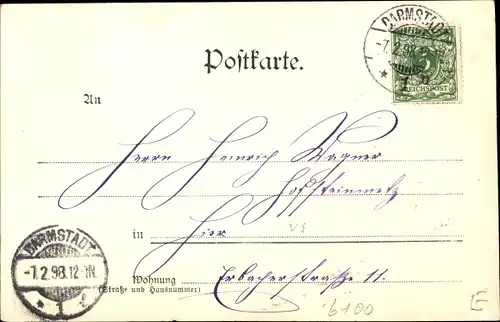 DARMSTADT
-7.2.98.
REICHSPOST
Postkarte.
An
Herrn Heinrich Wagner
Hofsteinmetz
in Hier
V§
Wohnung Erbacherstraße 11.
(Straße und Hausnummer)
DARMSTADT
-7.2.98.12-1N
* 1 f
6100